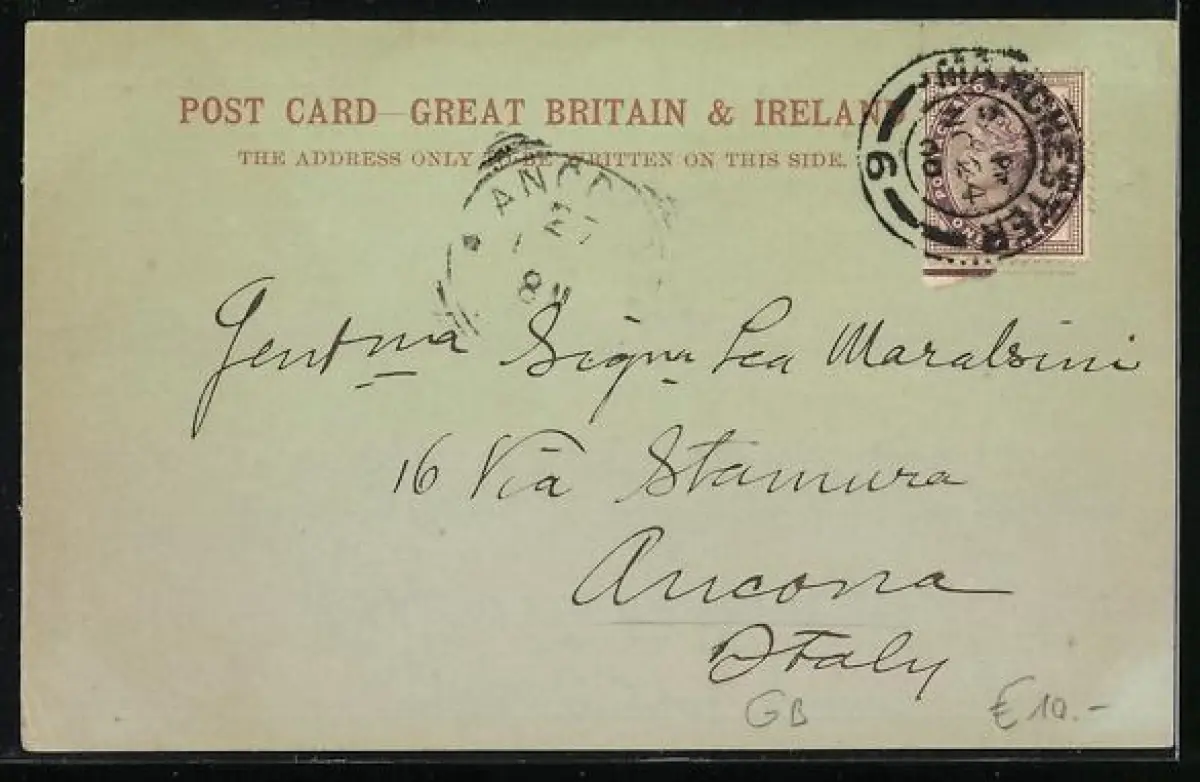 POST CARD—GREAT BRITAIN & IRELAND
THE ADDRESS ONLY TO BE WRITTEN ON THIS SIDE.
MANCHESTER
6
ANCO
Gentma Signa Lea Maralsini
16 Via Stamura
Ancona
Italy
GB €10.-